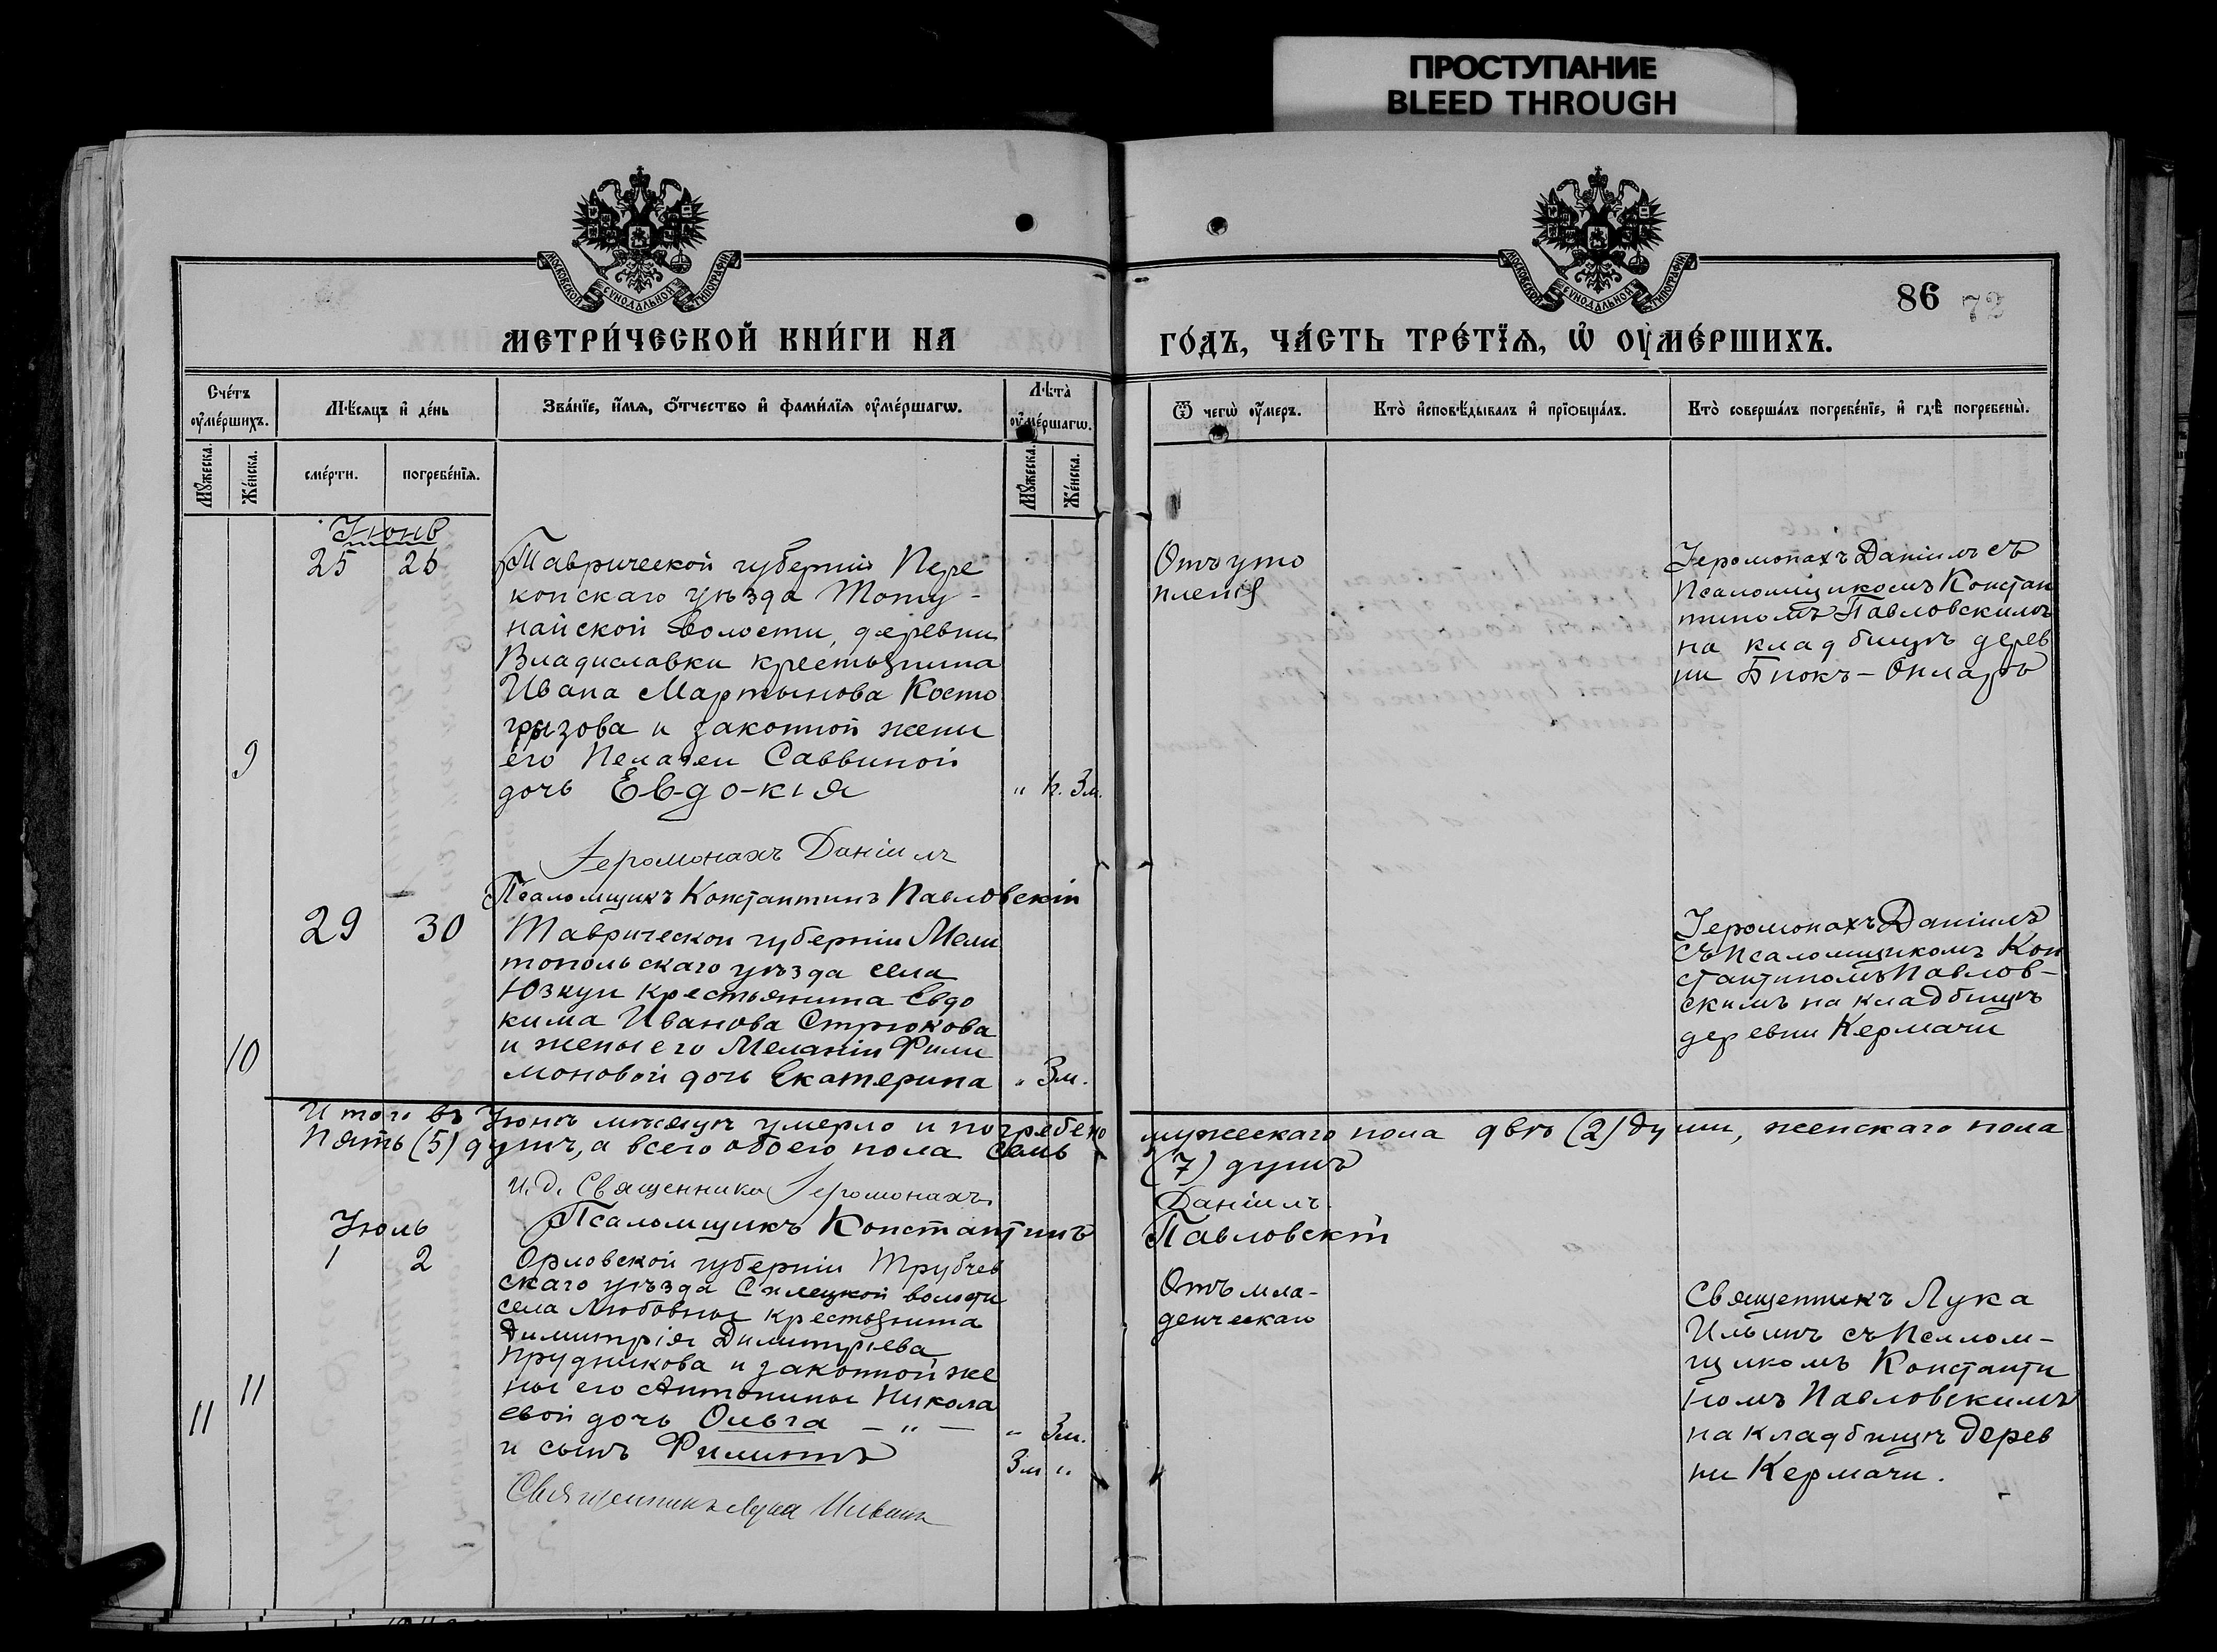 ПРОСТУПАНИЕ
BLEED THROUGH
МОСКОВСКОЙ СѴНОДАЛЬНОЙ ТИПОГРАФІИ
МОСКОВСКОЙ СѴНОДАЛЬНОЙ ТИПОГРАФІИ
86 72
МЕТРИ́ЧЕСКОЙ КНИ́ГИ НА
ГО́ДЪ, ЧА́СТЬ ТРЕ́ТЇѦ, Ѡ҆ ОУ҆МЕ́РШИХЪ.
Сче́тъ
оу҆ме́ршихъ.
Мѣ́сяцъ и҆ де́нь
Зва́нїе, и҆́мя, ѻ҆́тчество и҆ фами́лїя оу҆ме́ршагѡ.
Лѣта̀
оу҆ме́ршагѡ.
Ѿ чегѡ̀ оу҆́меръ.
Кто̀ и҆сповѣ́дывалъ и҆ прїѡбща́лъ.
Кто̀ соверша́лъ погребе́нїе, и҆ гдѣ̀ погребены̀.
Му́жеска.
Же́нска.
сме́рти.
погребе́нїя.
Му́жеска.
Же́нска.
Іюнь
25 26
Таврической губерніи Пере
копскаго уѣзда Тоту-
найской волости, деревни
Владиславки крестьянина
Ивана Мартынова Косто
грызова и законной жены
его Пелагеи Саввиной
9
дочь Ев-до-кія
" 3м.
Отъ уто
пленія
Іеромонахъ Даніилъ съ
Псаломщикомъ Констан
тиномъ Павловскимъ
на кладбищѣ дерев
ни Біюкъ-Онларъ
Іеромонахъ Даніилъ
Псаломщикъ Константинъ Павловскій
29 30
Таврической губерніи Мели
топольскаго уѣзда села
Юзкуи крестьянина Евдо
кима Иванова Стрюкова
и жены его Меланіи Фили
моновой дочь Екатерина
10
" 3м.
Іеромонахъ Даніилъ
съ Псаломщикомъ Кон
стантиномъ Павлов-
скимъ на кладбищѣ
деревни Кермачи
Итого въ Іюнѣ мѣсяцѣ умерло и погребено мужескаго пола двѣ (2) души, женскаго пола
Пять (5) душъ, а всего обоего пола семь (7) душъ
и.д. Священника Іеромонахъ Даніилъ
Псаломщикъ Константинъ Павловскій
Іюль
1 2
Орловской губерніи Трубчев
скаго уѣзда волости
села Любовны крестьянина
Димитрія Димитріева
Прудникова и законной же
ны его Антонины Никола
евой дочь Ольга — " —
и сынъ Филиппъ
11
11
" 3м.
3м "
Отъ мла-
денческаго
Священникъ Лука
Ильинъ съ Псалом-
щикомъ Константи
номъ Павловскимъ
на кладбищѣ дерев
ни Кермачи.
Священникъ Лука Ильинъ